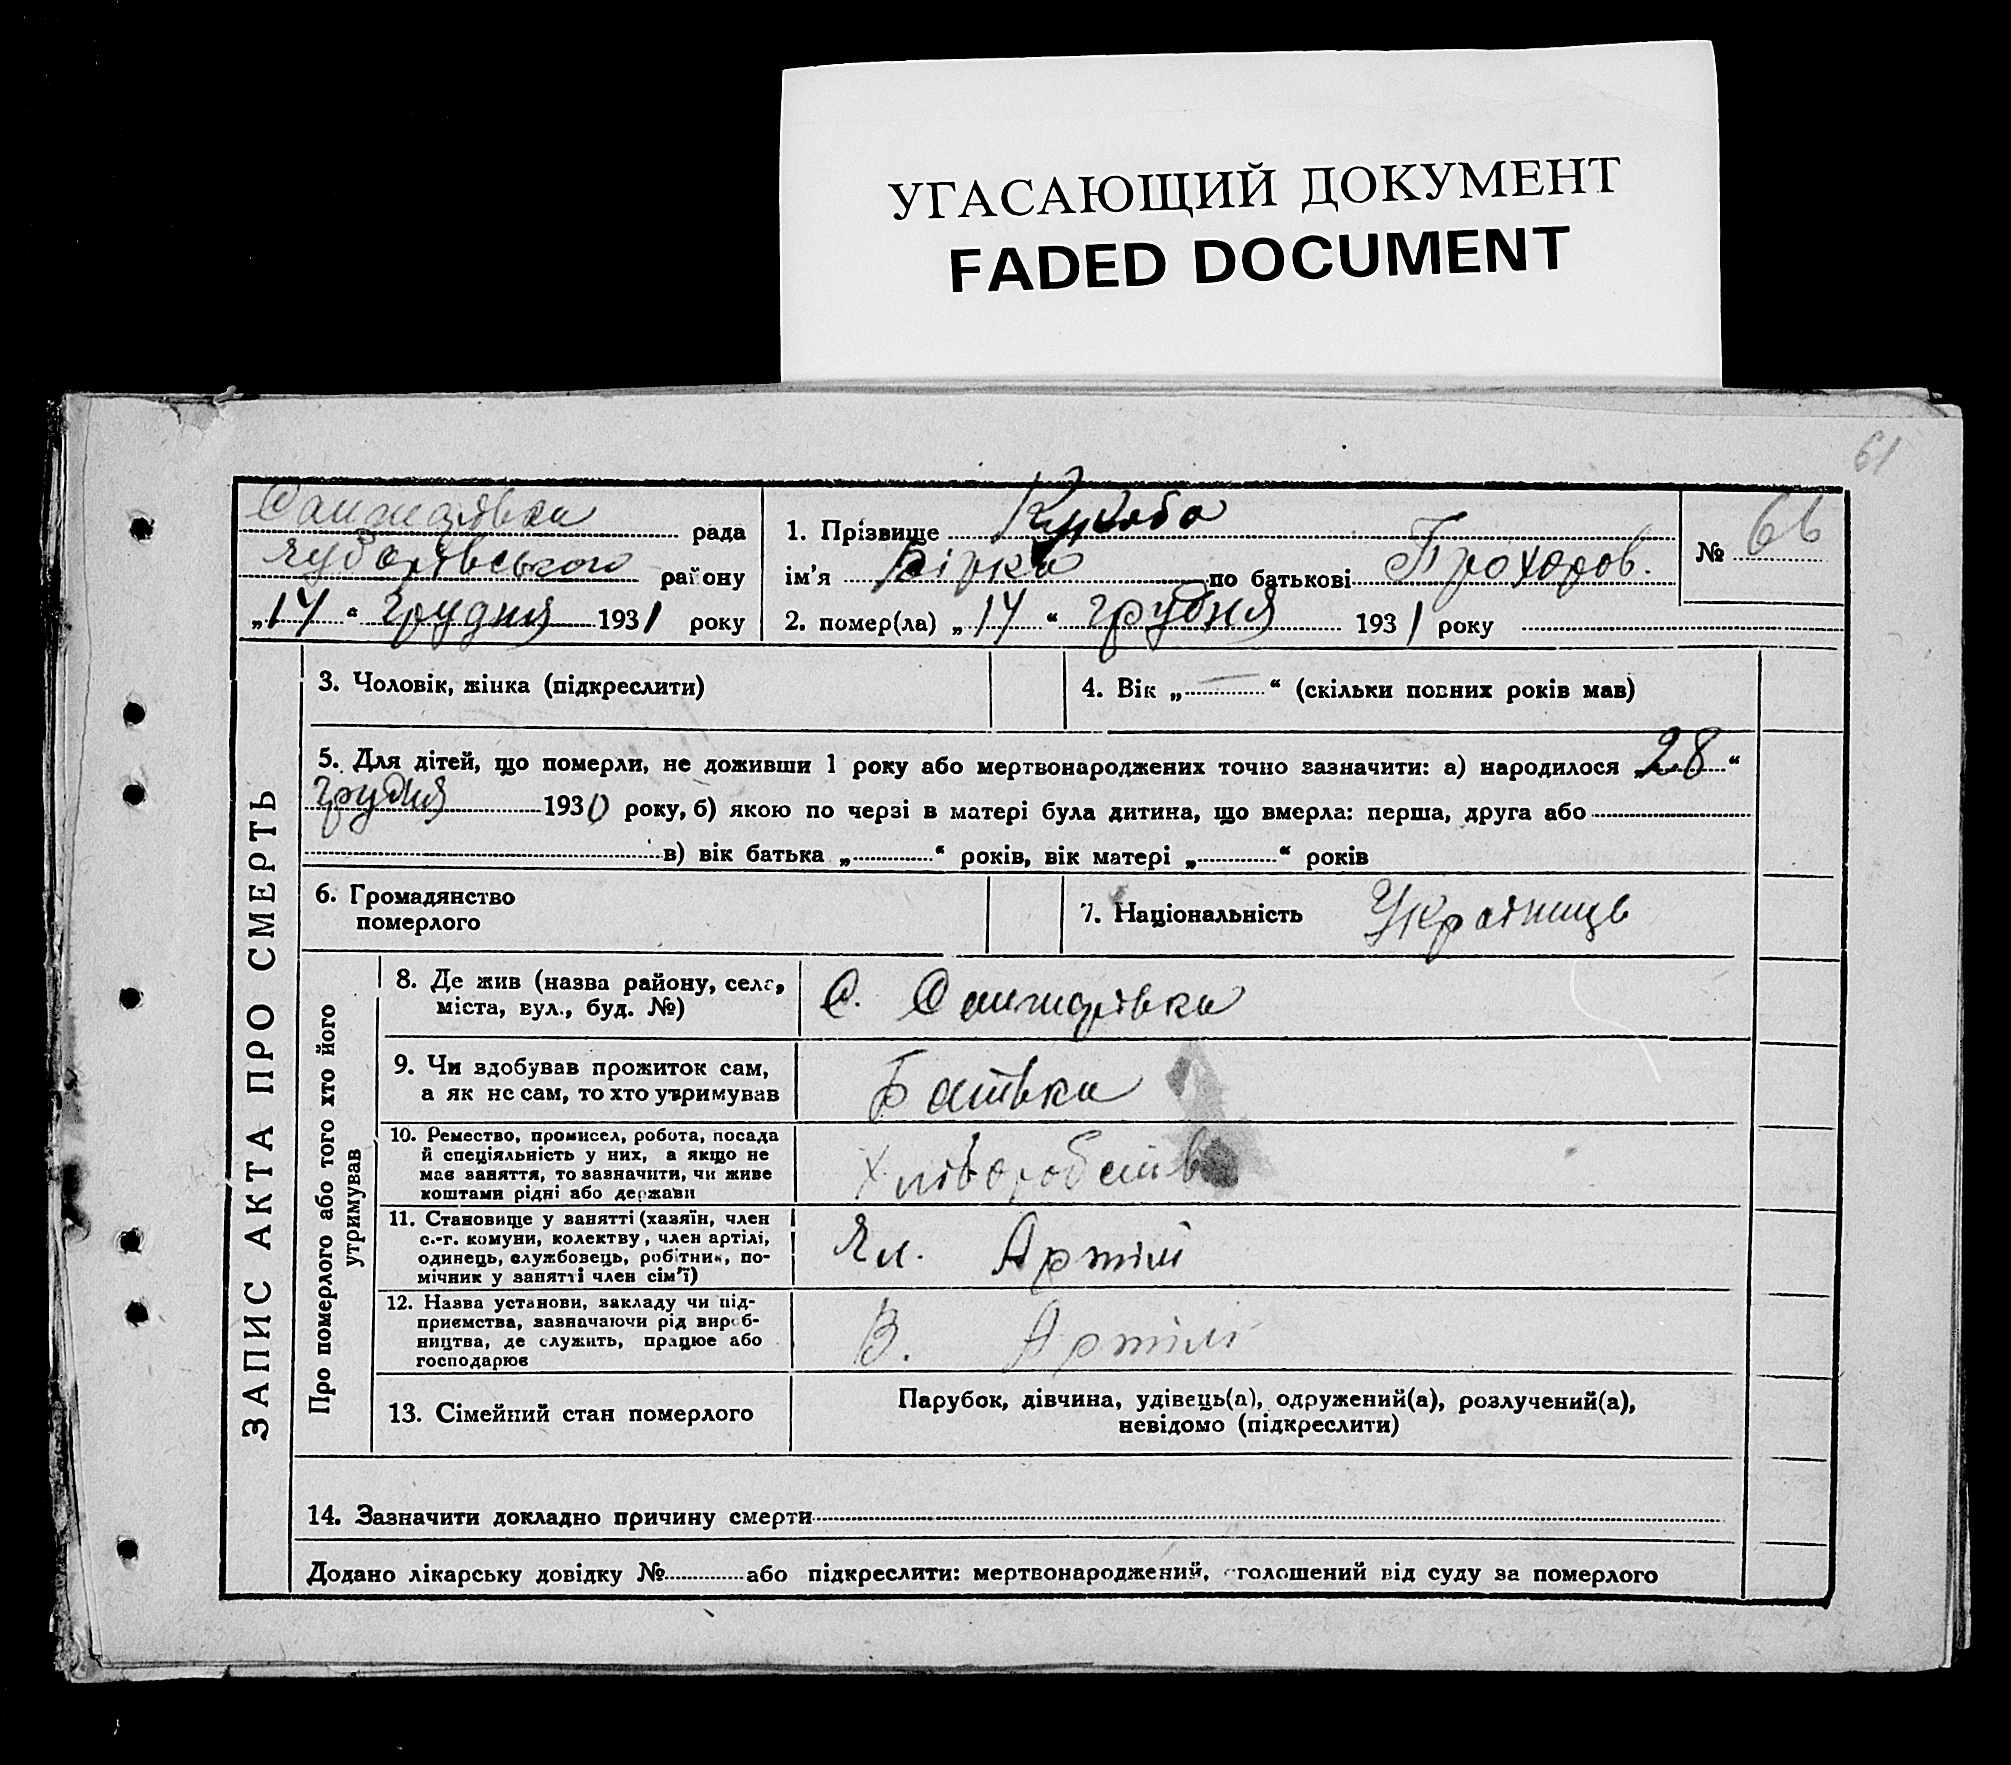 УГАСАЮЩИЙ ДОКУМЕНТ
FADED DOCUMENT
61
Санжарівка рада
Чубарівського району
„14“ Грудня 1931 року
1. Прізвище
ім'я Вірка по батькові Прохоров.
2. помер(ла) „14“ грудня 1931 року
№ 66
ЗАПИС АКТА ПРО СМЕРТЬ
3. Чоловік, жінка (підкреслити)
4. Вік „ — “ (скільки повних років мав)
5. Для дітей, що померли, не доживши 1 року або мертвонароджених точно зазначити: а) народилося „28“
грудня 1930 року, б) якою по черзі в матері була дитина, що вмерла: перша, друга або
в) вік батька „ “ років, вік матері „ “ років
6. Громадянство
померлого
7. Національність Українць
Про померлого або того хто його
утримував
8. Де жив (назва району, села,
міста, вул., буд. №)
С. Санжарівка
9. Чи здобував прожиток сам,
а як не сам, то хто утримував
Батько
10. Ремество, промисел, робота, посада
й спеціяльність у них, а якщо не
має заняття, то зазначити, чи живе
коштами рідні або держави
Хліборобств
11. Становище у занятті (хазяїн, член
с.-г. комуни, колектву, член артілі,
одинець, службовець, робітник, по-
мічник у занятті член сім'ї)
Чл. Артілі
12. Назва установи, закладу чи під-
приємства, зазначаючи рід вироб-
ництва, де служить, працює або
господарює
В. Артілі
13. Сімейний стан померлого
Парубок, дівчина, удівець(а), одружений(а), розлучений(а),
невідомо (підкреслити)
14. Зазначити докладно причину смерти
Додано лікарську довідку № або підкреслити: мертвонароджений, оголошений від суду за померлого